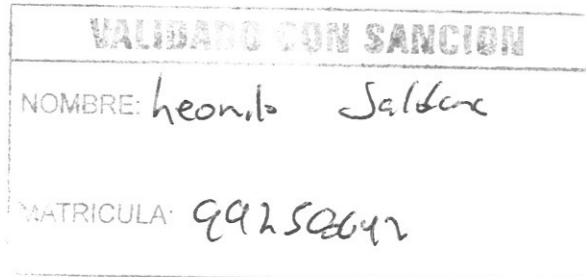 VALIDADO CON SANCION
NOMBRE: Leonila Saldana
MATRICULA: 99250642